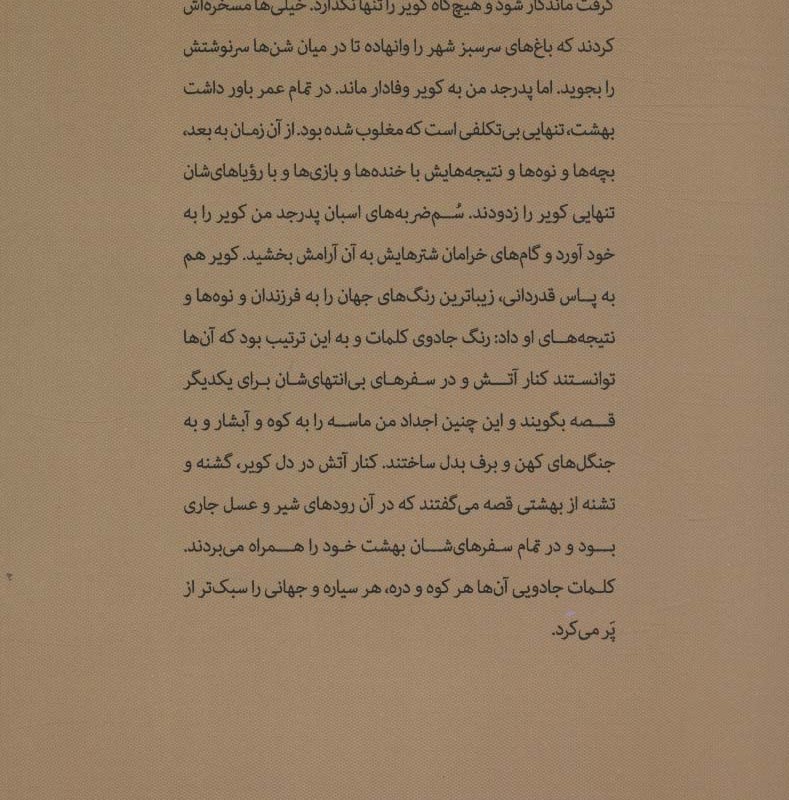 گرفت ماندگار شود و هیچ‌گاه کویر را تنها نگذارد. خیلی‌ها مسخره‌اش
کردند که باغ‌های سرسبز شهر را وانهاده تا در میان شن‌ها سرنوشتش
را بجوید. اما پدرجد من به کویر وفادار ماند. در تمام عمر باور داشت
بهشت، تنهایی بی‌تکلفی است که مغلوب شده بود. از آن زمان به بعد،
بچه‌ها و نوه‌ها و نتیجه‌هایش با خنده‌ها و بازی‌ها و با رؤیاهای‌شان
تنهایی کویر را زدودند. سُم‌ضربه‌های اسبان پدرجد من کویر را به
خود آورد و گام‌های خرامان شترهایش به آن آرامش بخشید. کویر هم
به پاس قدردانی، زیباترین رنگ‌های جهان را به فرزندان و نوه‌ها و
نتیجه‌های او داد: رنگ جادوی کلمات و به این ترتیب بود که آن‌ها
توانستند کنار آتش و در سفرهای بی‌انتهای‌شان برای یکدیگر
قصه بگویند و این چنین اجداد من ماسه را به کوه و آبشار و به
جنگل‌های کهن و برف بدل ساختند. کنار آتش در دل کویر، گشنه و
تشنه از بهشتی قصه می‌گفتند که در آن رودهای شیر و عسل جاری
بود و در تمام سفرهای‌شان بهشت خود را همراه می‌بردند.
کلمات جادویی آن‌ها هر کوه و دره، هر سیاره و جهانی را سبک‌تر از
پَر می‌کرد.